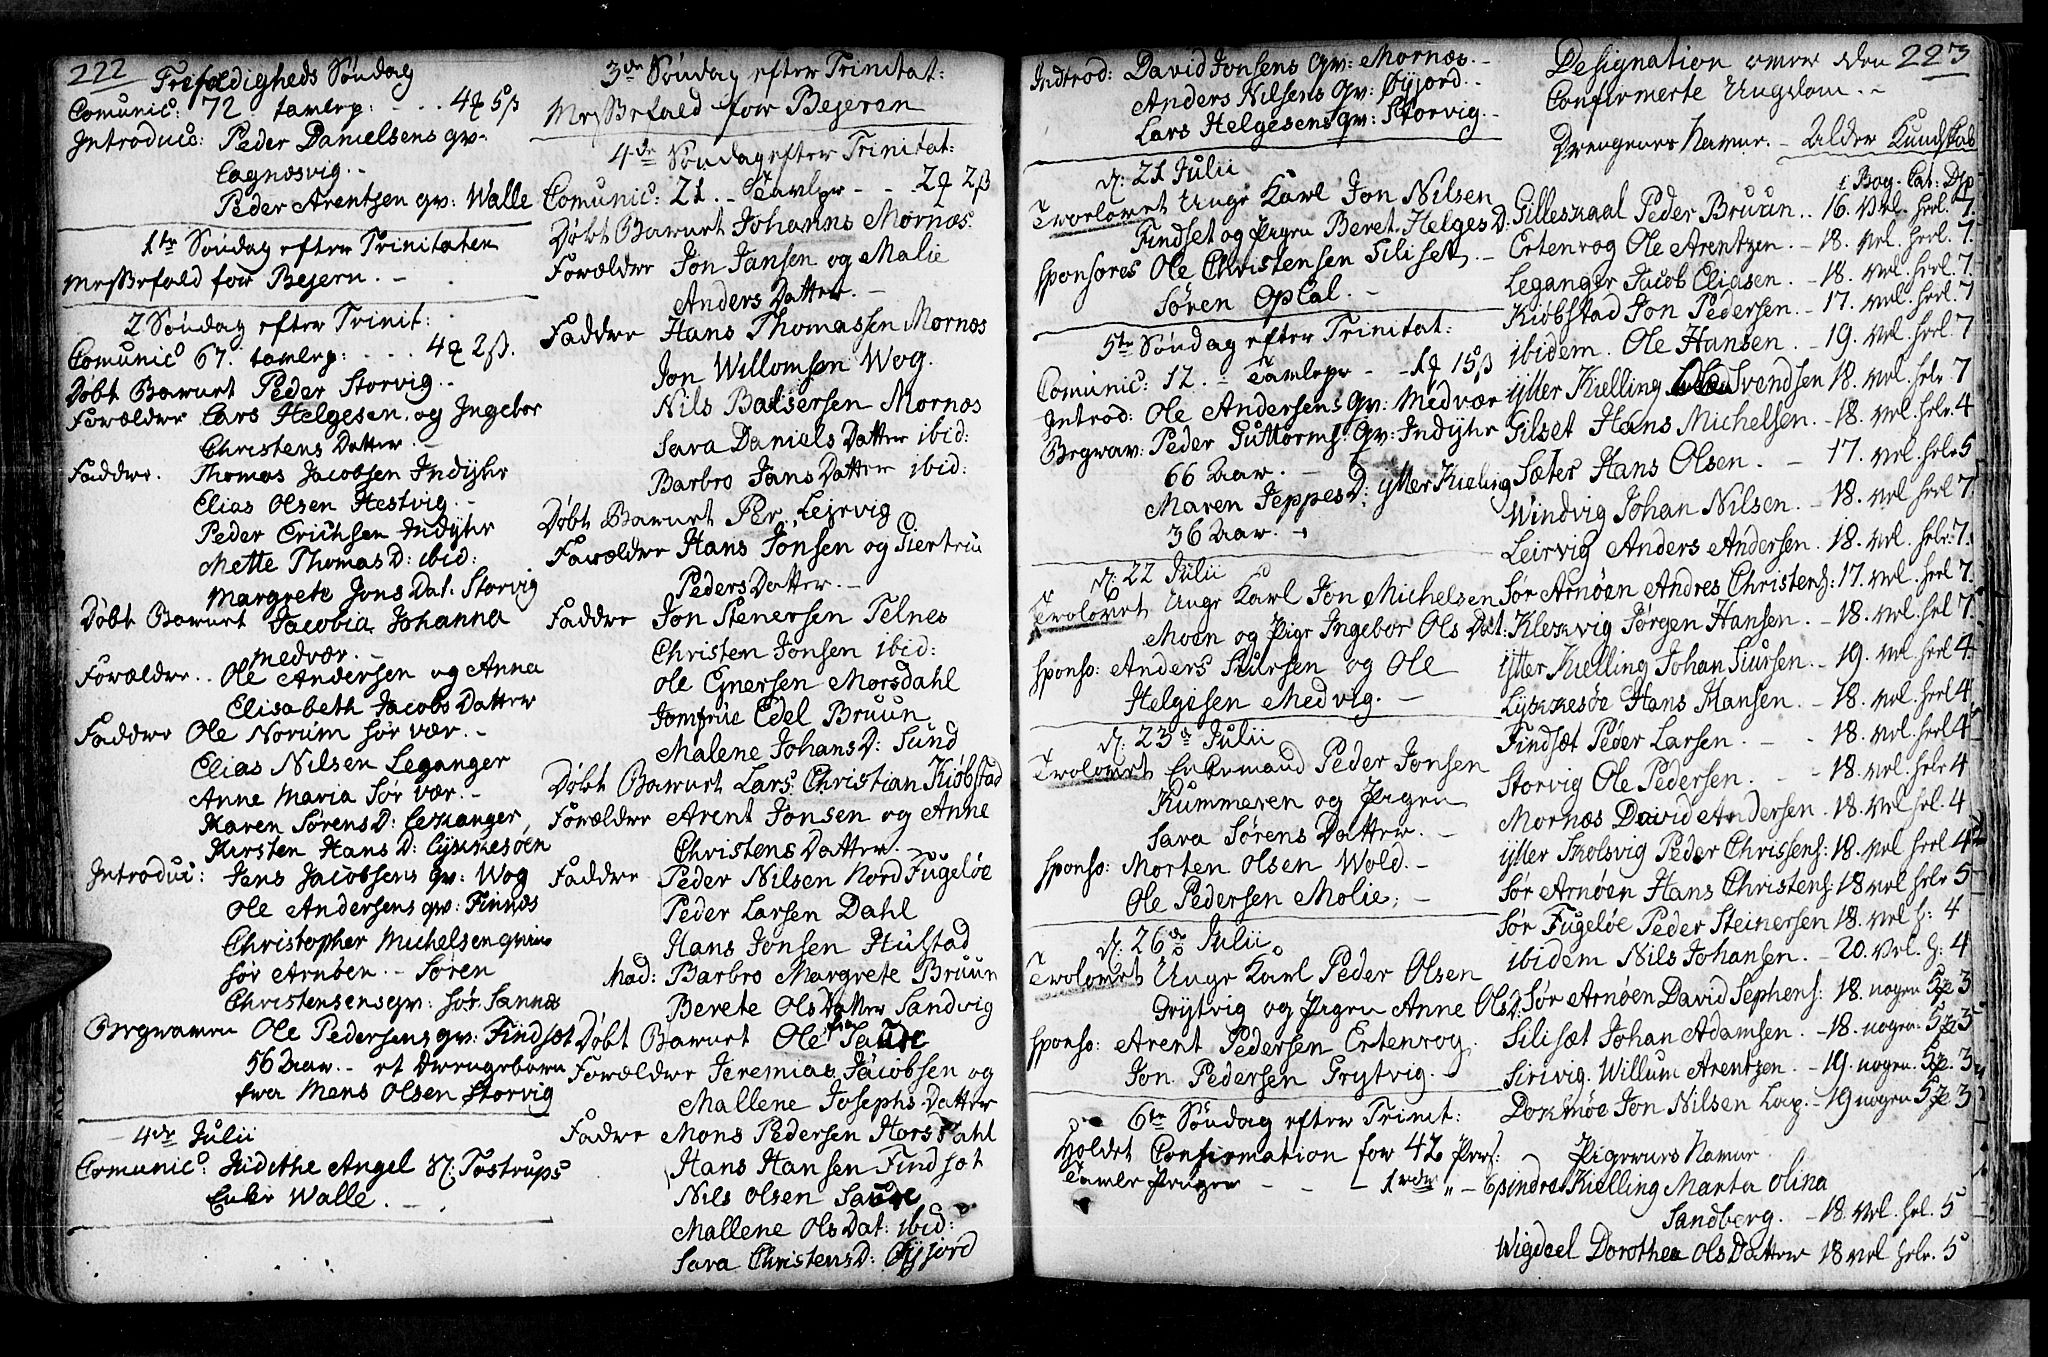 222
Trefoldigheds Søndag
Comunic: 72 tavlep: - . . 4 5ß
Introduc: Peder Danielsens qv:
Lagnæsvig. -
Peder Arentsen qv: Walle
1te Søndag efter Trinitaten
Messefald for Bejern. -
2 Søndag efter Trinit:
Comunic: 67. tavlep: . . . 4 2ß.
Døbt Barnet Peder Storvig. -
Forældre Lars Helgesen og Ingebor
Christens Datter. -
Faddre. Thomas Jacobsen Indijhr
Elias Olsen Hestvig. -
Peder Erichsen Indijhr
Mette Thomas D: ibid:
Margrete Jons Dat. Storvig
Døbt Barnet Jacobia Johanna
Medvær. -
Forældre . . Ole Andersen og Anna
Elisabeth Jacobs Datter
Faddre Ole Norum Sør vær. -
Elias Nilsen Leganger
Anne Maria Sør vær. -
Karen Sørens D: Leganger
Kirsten Hans D: Lykkesøen
Introduc: Jens Jacobsens qv: Wog
Ole Andersens qv: Finnæs
Christopher Michelsen qvin
Sør Arnøen. - Søren
Christensens qv: Sør Sannæs
Begraven Ole Pedersens qv: Findsæt
56 Aar. - et Drengebarn
fra Mens Olsen Storvig
4de Julii
Comunic: Judithe Angel Sl: Tostrups
Enke Walle. -
3de Søndag efter Trinitat:
Messefald for Bejeren
4de Søndag efter Trinitat:
Comunic: 21. - Tavlep - - 2 2ß
Døbt Barnet Johanns Mornæs.
Forældre Jon Jansen og Malie
Anders Datter. -
Faddre Hans Thomassen Mornæs
Jon Willomsen Wog.
Nils Baltsersen Mornæs
Sara Daniels Datter ibid:
Barbro Jans Datter ibid:
Døbt Barnet Per Leirvig
Forældre Hans Jonsen og Giertru
Peders Datter. -
Faddre Jon Stenersen Telnes
Christen Jonsen ibid:
Ole Ejnersen Morsdahl
Jomfrue Edel Bruun
Malene Johans D: Sund
Døbt Barnet Lars Christian Kiøbstad
Forældre Arent Jonsen og Anne
Christens Datter. -
Faddre Peder Nilsen Nord Fugeløe
Peder Larsen Dahl
Hans Jonsen Hustad
Mad: Barbro Margrete Bruun
Berete Ols Datter Sandvig
Døbt Barnet Ole Saude
Forældre Jeremias Jacobsen og
Mallene Josephs Datter
Fadre Mons Pedersen Horsdahl
Hans Hansen Findsæt
Nils Olsen Saude
Mallene Ols Dat: ibid:
Sara Christens D: Øyjord
Indtrod: David Jonsens qv: Mornæs. -
Anders Nilsens qv: Øyjord. -
Lars Helgesens qv: Storvig. -
d: 21 Julii
Trolovet Unge Karl Jon Nilsen
Findset og Pigen Beret Helges D:
Sponsores Ole Christensen Siliset. -
Søren Opsal. -
5te Søndag efter Trinitat:
Comunic: 12. - Tavlep - - 1 15ß
Introd: Ole Andersens qv: Medvær
Begrav: Peder Guttorms qv: Indijhr
66 Aar. -
Maren Jeppes D: ytter Kieling
36 Aar. -
d: 22 Julii
Trolovet Unge Karl Jon Michelsen
Moen og Pige Ingebor Ols Dat:
Sponso: Anders Siursen og Ole
Helgesen Medvig. -
d: 23de Julii
Trolovet Enkemand Peder Jonsen
Kummeren og Pigen
Sara Sørens Datter. -
Sponso: Morten Olsen Wold. -
Ole Pedersen Molie. -
d: 26de Julii
Trolovet Unge Karl Peder Olsen
Grytvig og Pigen Anne Ols D:
Sponso: Arent Pedersen Ertenvog.
Jon Pedersen Grytvig. -
6te Søndag efter Trinit:
Holdet Confirmation for 42 Pers:
Tavle Penger - - - 1rdr
223
Designation over den
Confirmerte Ungdom. -
Drengenes Navne. - Alder Kundskab
i Bog. Cat: Dp
Gilleskaal Peder Bruun. . 16. Vel. heel. 7.
Ertenvog Ole Arentzen. - 18. vel. heel. 7.
Leganger Jacob Eliasen. - 18. vel. heel. 7.
Kiøbstad Jon Pedersen. - 17. vel. heel. 7
ibidem. Ole Hansen. - 19. vel. heel 7
ytter Kielling Svendsen 18. vel. hele 7
Gilset Hans Michelsen. - 18. vel. hele. 4
Sæter Hans Olsen. - 17. vel. hele 5
Windvig Johan Nilsen. - 18. vel heel 7
Leirvig Anders Andersen. 18. vel. hele: 7.
Sør Arnøen Andres Christens: 17. vel. heel 7.
Klekvig Jørgen Hansen. - 18. vel. hel 7
ytter Kielling Johan Siursen. - 19. vel. heel 4
Lykkesøe Hans Hansen. - 18. vel. heel 4
Findsæt Peder Larsen. - . 18. vel. heel 4
Storvig Ole Pedersen. - 18. vel. hele 4
Mornæs David Andersen. 18. vel hel. 4
ytter Skolsvig Peder Chrissens: 18. vel heel 4
Sør Arnøen Hans Christens: 18 vel hele 5
Sør Fugeløe Peder Steinersen 18. vel h: 4
ibidem Nils Johansen. - 20. vel. h: 4
Sør Arnøen David Sephens: 18. nogen 3
Silisæt Johan Adamsen. - 18. nogen: 3
Sirivig. Willum Arentzen. - 19. nogen. 3
Dokmøe Jon Nilsen Lap. - 19 nogen 3
Pigernes Navne
indre Kielling Marta Olina
Sandberg. - 18. vel. hel. 5
Wigdeel Dorothea Ols Datter 18 vel hele. 5